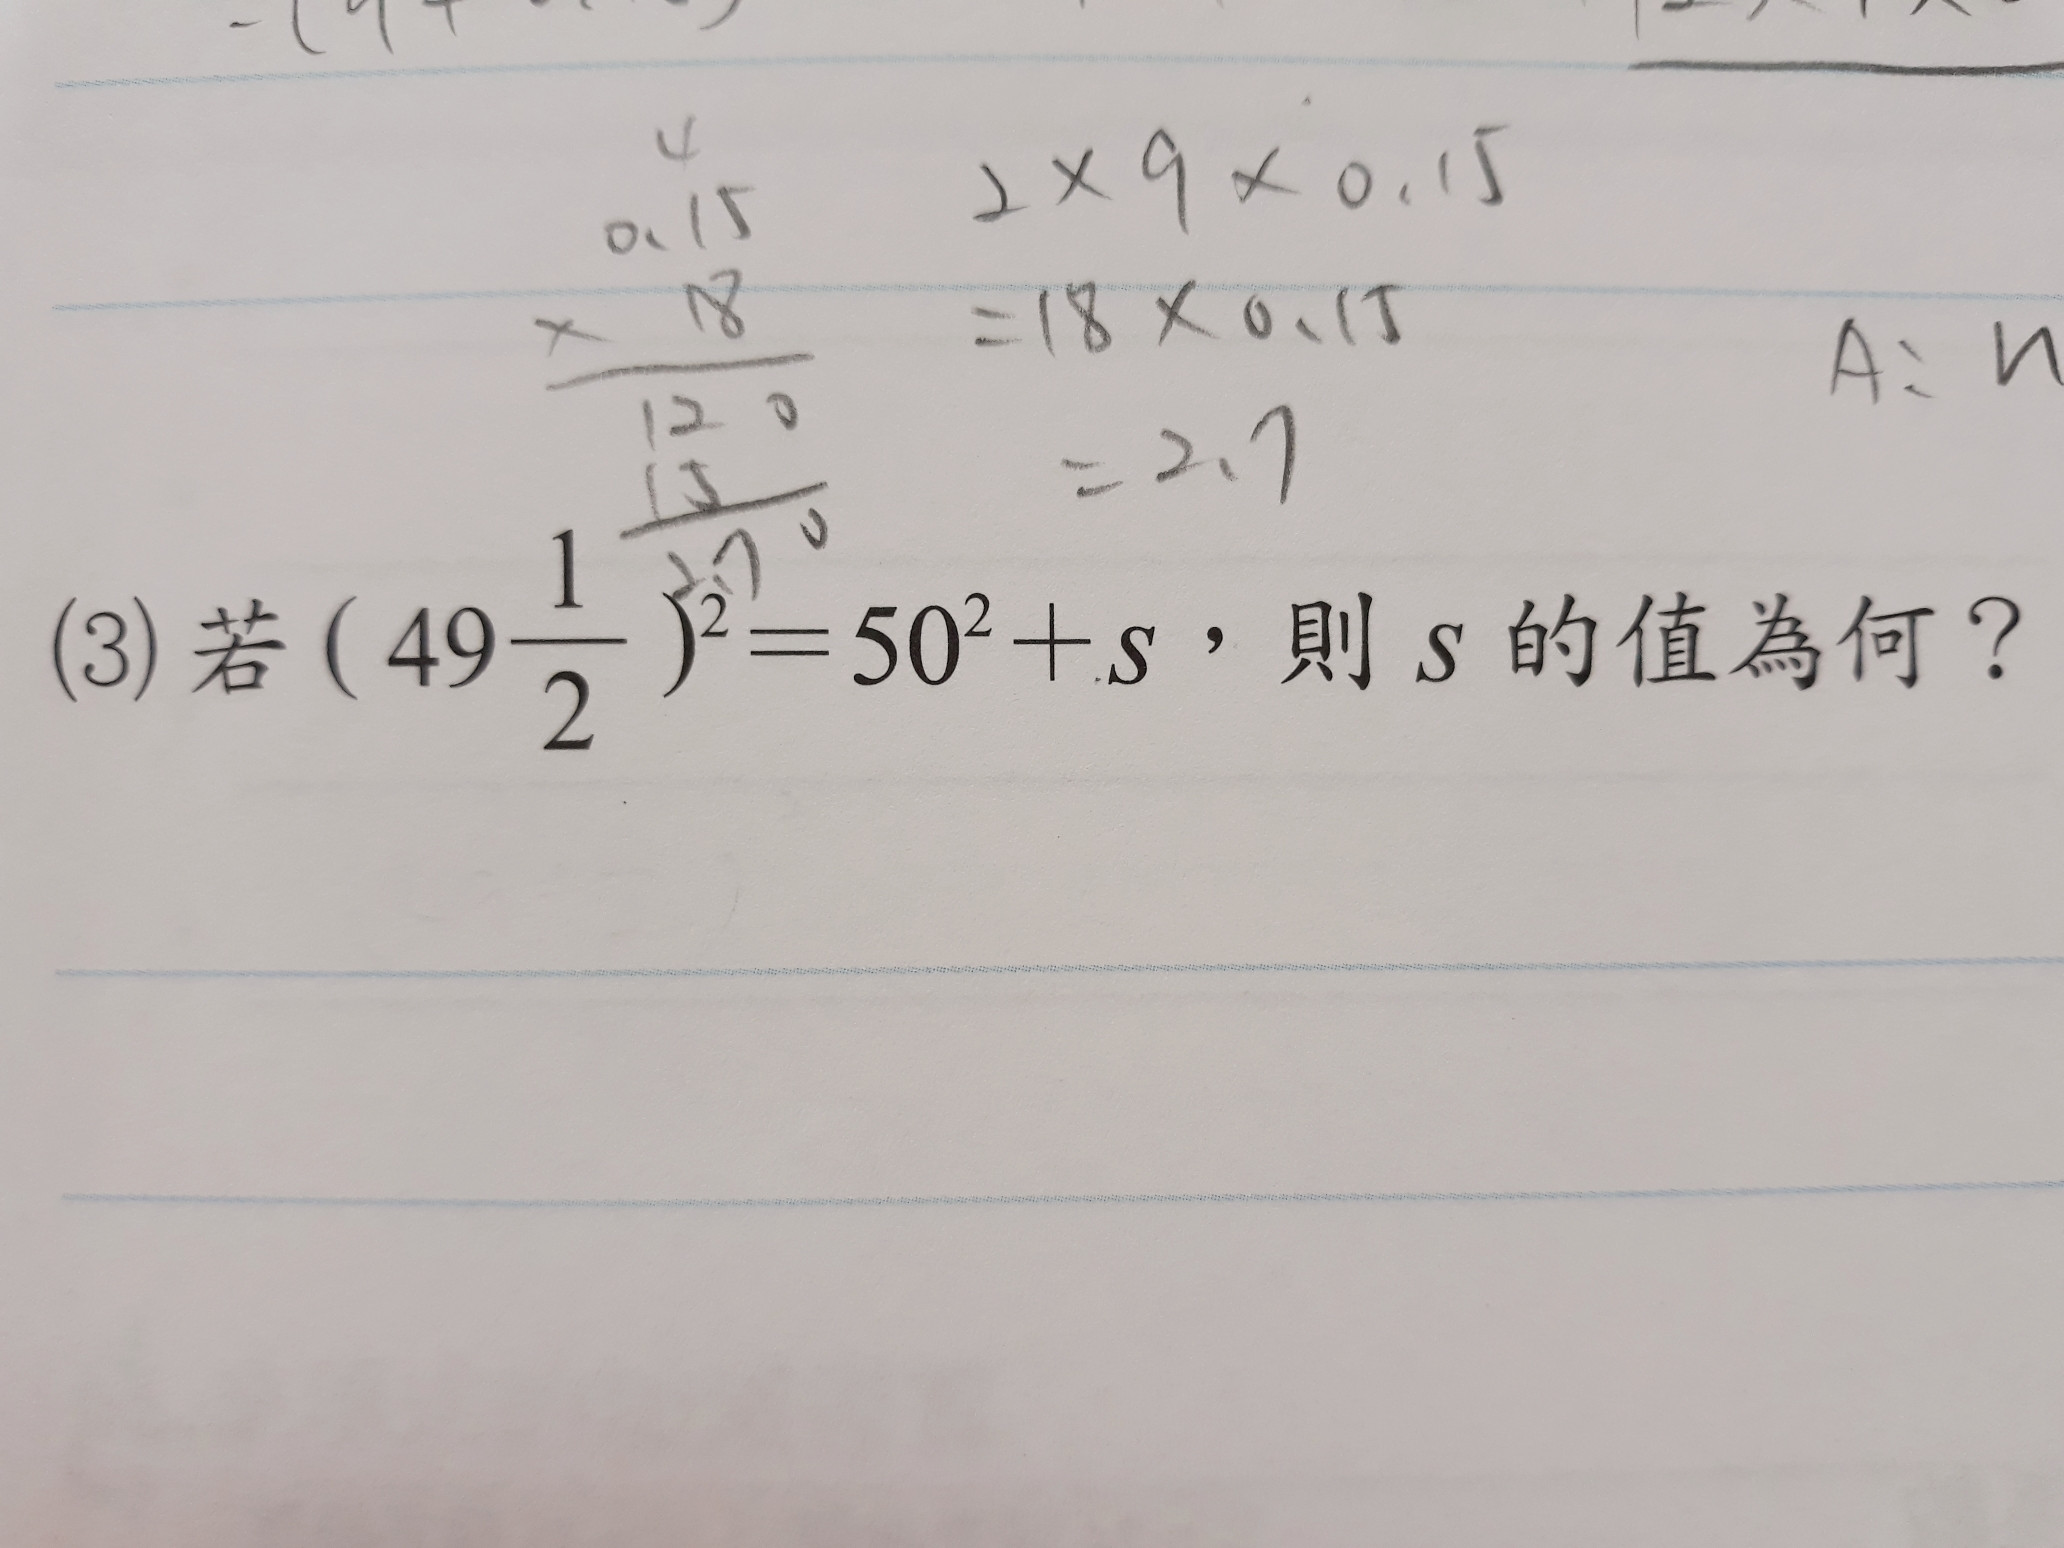 4
0.15
× 18
120
15
2.70
2×9×0.15
=18×0.15
=2.7
A:
(3) 若 ( 49 1/2 )²=50²+s,則 s 的值為何?